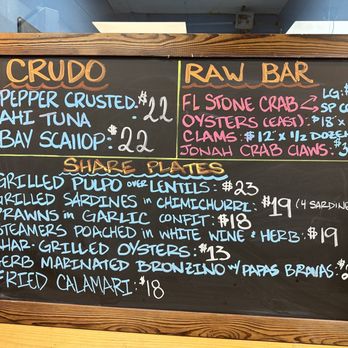 CRUDO
PEPPER CRUSTED
AHI TUNA $22
BAY SCALLOP: $22
RAW BAR
FL STONE CRAB LG: $
SP CO
OYSTERS (EAST): $18 x
CLAMS: $12 x 1/2 DOZEN
JONAH CRAB CLAWS: $
SHARE PLATES
GRILLED PULPO OVER LENTILS: $23
GRILLED SARDINES IN CHIMICHURRI: $19 (4 SARDIN
PRAWNS IN GARLIC CONFIT: $18
STEAMERS POACHED IN WHITE WINE & HERB: $19
HAR-GRILLED OYSTERS: $13
ERB MARINATED BRONZINO W/ PAPAS BRAVAS: $
FRIED CALAMARI: $18